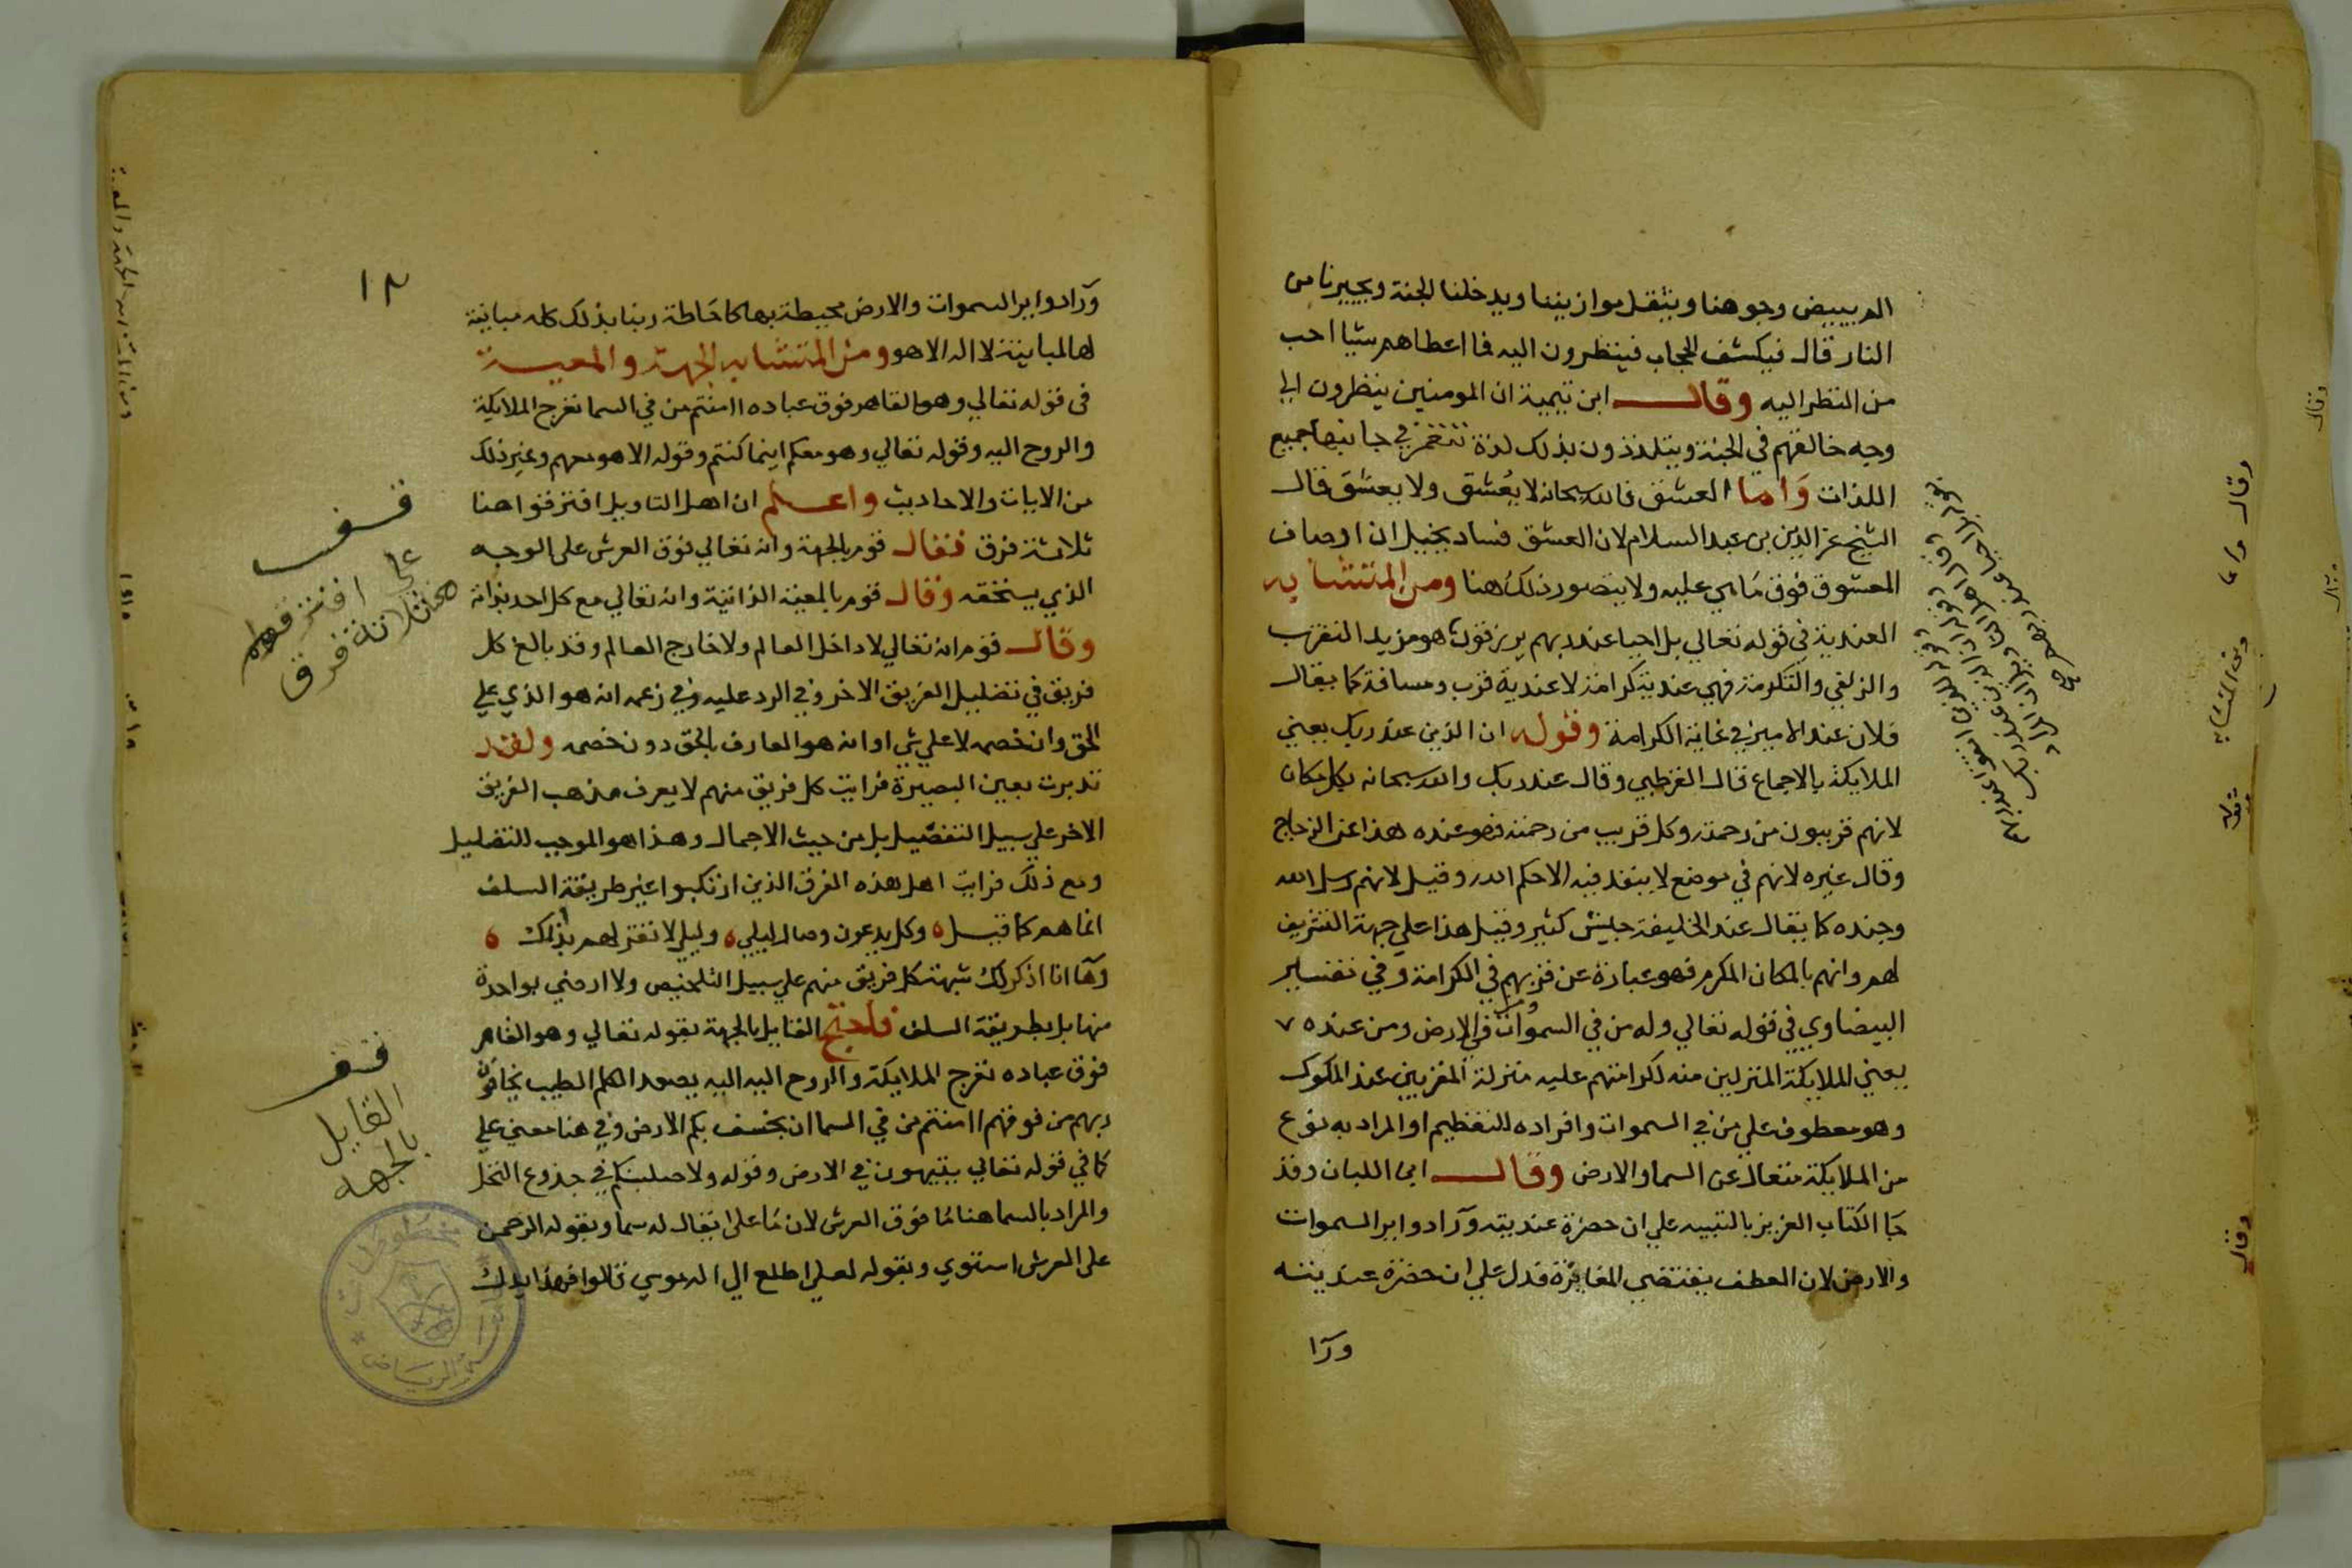 الم يبيض وجوهنا ويثقل موازيننا ويدخلنا الجنة ويجيرنا من
النار قال فيكشف الحجاب فينظرون اليه فما اعطاهم شيئا احب
من النظر اليه وقال ابن تيمية ان المومنين ينظرون الي
وجه خالقهم في الجنة ويتلذذون بذلك لذة تنغمر في جانبها جميع
اللذات وَاما العشق فالله سبحانه لا يُعشق ولا يعشق قال
الشيخ عز الدين بن عبد السلام لان العشق فساد يخيل ان اوصاف
المعشوق فوق مَا هي عليه ولا يتصور ذلك هنا ومن المتشابه
العندية في قوله تعالي بل احيا عند ربهم يرزقون هو مزيد التقرب
والزلفي والتكرمة فهي عندية كرامة لا عندية قرب ومسافة كما يقال
فلان عند الامير في غاية الكرامة وقوله ان الذين عند ربك يعني
الملايكة بالاجماع قال القرطبي وقال عند ربك والله سبحانه بكل مكان
لانهم قريبون من رحمته وكل قريب من رحمته فهو عنده هذا عن الزجاج
وقال غيره لانهم في موضع لا ينفذ فيه الا حكم الله وقيل لانهم رسل الله
وجنده كما يقال عند الخليفة جيش كثير وقيل هذا علي جهة التشريف
لهم وانهم بالمكان المكرم فهو عبارة عن قربهم في الكرامة وفي تفسير
البيضاوي في قوله تعالي وله من في السموات ومن في الارض ومن عنده
يعني الملايكة المنزلين منه لكرامتهم عليه منزلة المقربين عند الملوك
وهو معطوف علي من في السموات وافراده للتعظيم او المراد به نوع
من الملايكة متعال عن السما والارض وقال ابن اللبان وقد
جَا الكتاب العزيز بالتنبيه علي ان حضرة عنديته ورَا دواير السموات
والارض لان العطف يقتضي المغايرة فدل علي ان حضرة عنديته
ورَا
١٢
ورَا دواير السموات والارض محيطة بها كاحَاطة ربنا بذلك كله مباينة
لها لمباينته لا اله الا هو ومن المتشابه الجهة والمعية
في قوله تعالي وهو القاهر فوق عباده اامنتم من في السما تعرج الملايكة
والروح اليه وقوله تعالي وهو معكم اينما كنتم وقوله الا هو معهم وغير ذلك
من الايات والاحاديث واعلم ان اهل التاويل افترقوا هنا
ثلاثة فرق فقال قوم بالجهة وانه تعالي فوق العرش على الوجه
الذي يستحقه وقال قوم بالمعية الذاتية وانه تعالي مع كل احد بذاته
وقال قوم انه تعالي لا داخل العالم ولا خارج العالم وقد بالغ كل
فريق في تضليل الفريق الاخر وفي الرد عليه وفي زعمه انه هو الذي علي
الحق وان خصمه لا علي شي او انه هو العارف بالحق دون خصمه ولقد
تدبرت بعين البصيرة فرايت كل فريق منهم لا يعرف مذهب الفريق
الاخر علي سبيل التفصّيل بل من حيث الاجمال وهذا هو الموجب للتضليل
ومع ذلك فرايت اهل هذه الفرق الذين ارتكبوا غير طريقة السلف
انما هم كما قيل ٥ وكل يدعون وصال ليلي ٥ وليلي لا تقر لهم بذلك ٥
وهَا انا اذكر لك شبهة كل فريق منهم علي سبيل التلخيص ولا ارضي بواحدة
منها بل بطريقة السلف فاحتج القايل بالجهة بقوله تعالي وهو القاهر
فوق عباده تعرج الملايكة والروح اليه اليه يصعد الكلم الطيب يخافون
ربهم من فوقهم اامنتم من في السما ان يخسف بكم الارض وفي هنا معني علي
كما في قوله تعالي يتيهون في الارض وقوله ولاصلبنكم في جذوع النخل
والمراد بالسما هنا مَا فوق العرش لان مَا علا يقال له سما وبقوله الرحمن
على العرش استوي وبقوله لعلي اطلع الي اله موسي قالوا فهذا يدلك
قف
علي افتراقهم
هنا ثلاثة فرق
قف
القايل
بالجهه
مخطوطات
الرياض